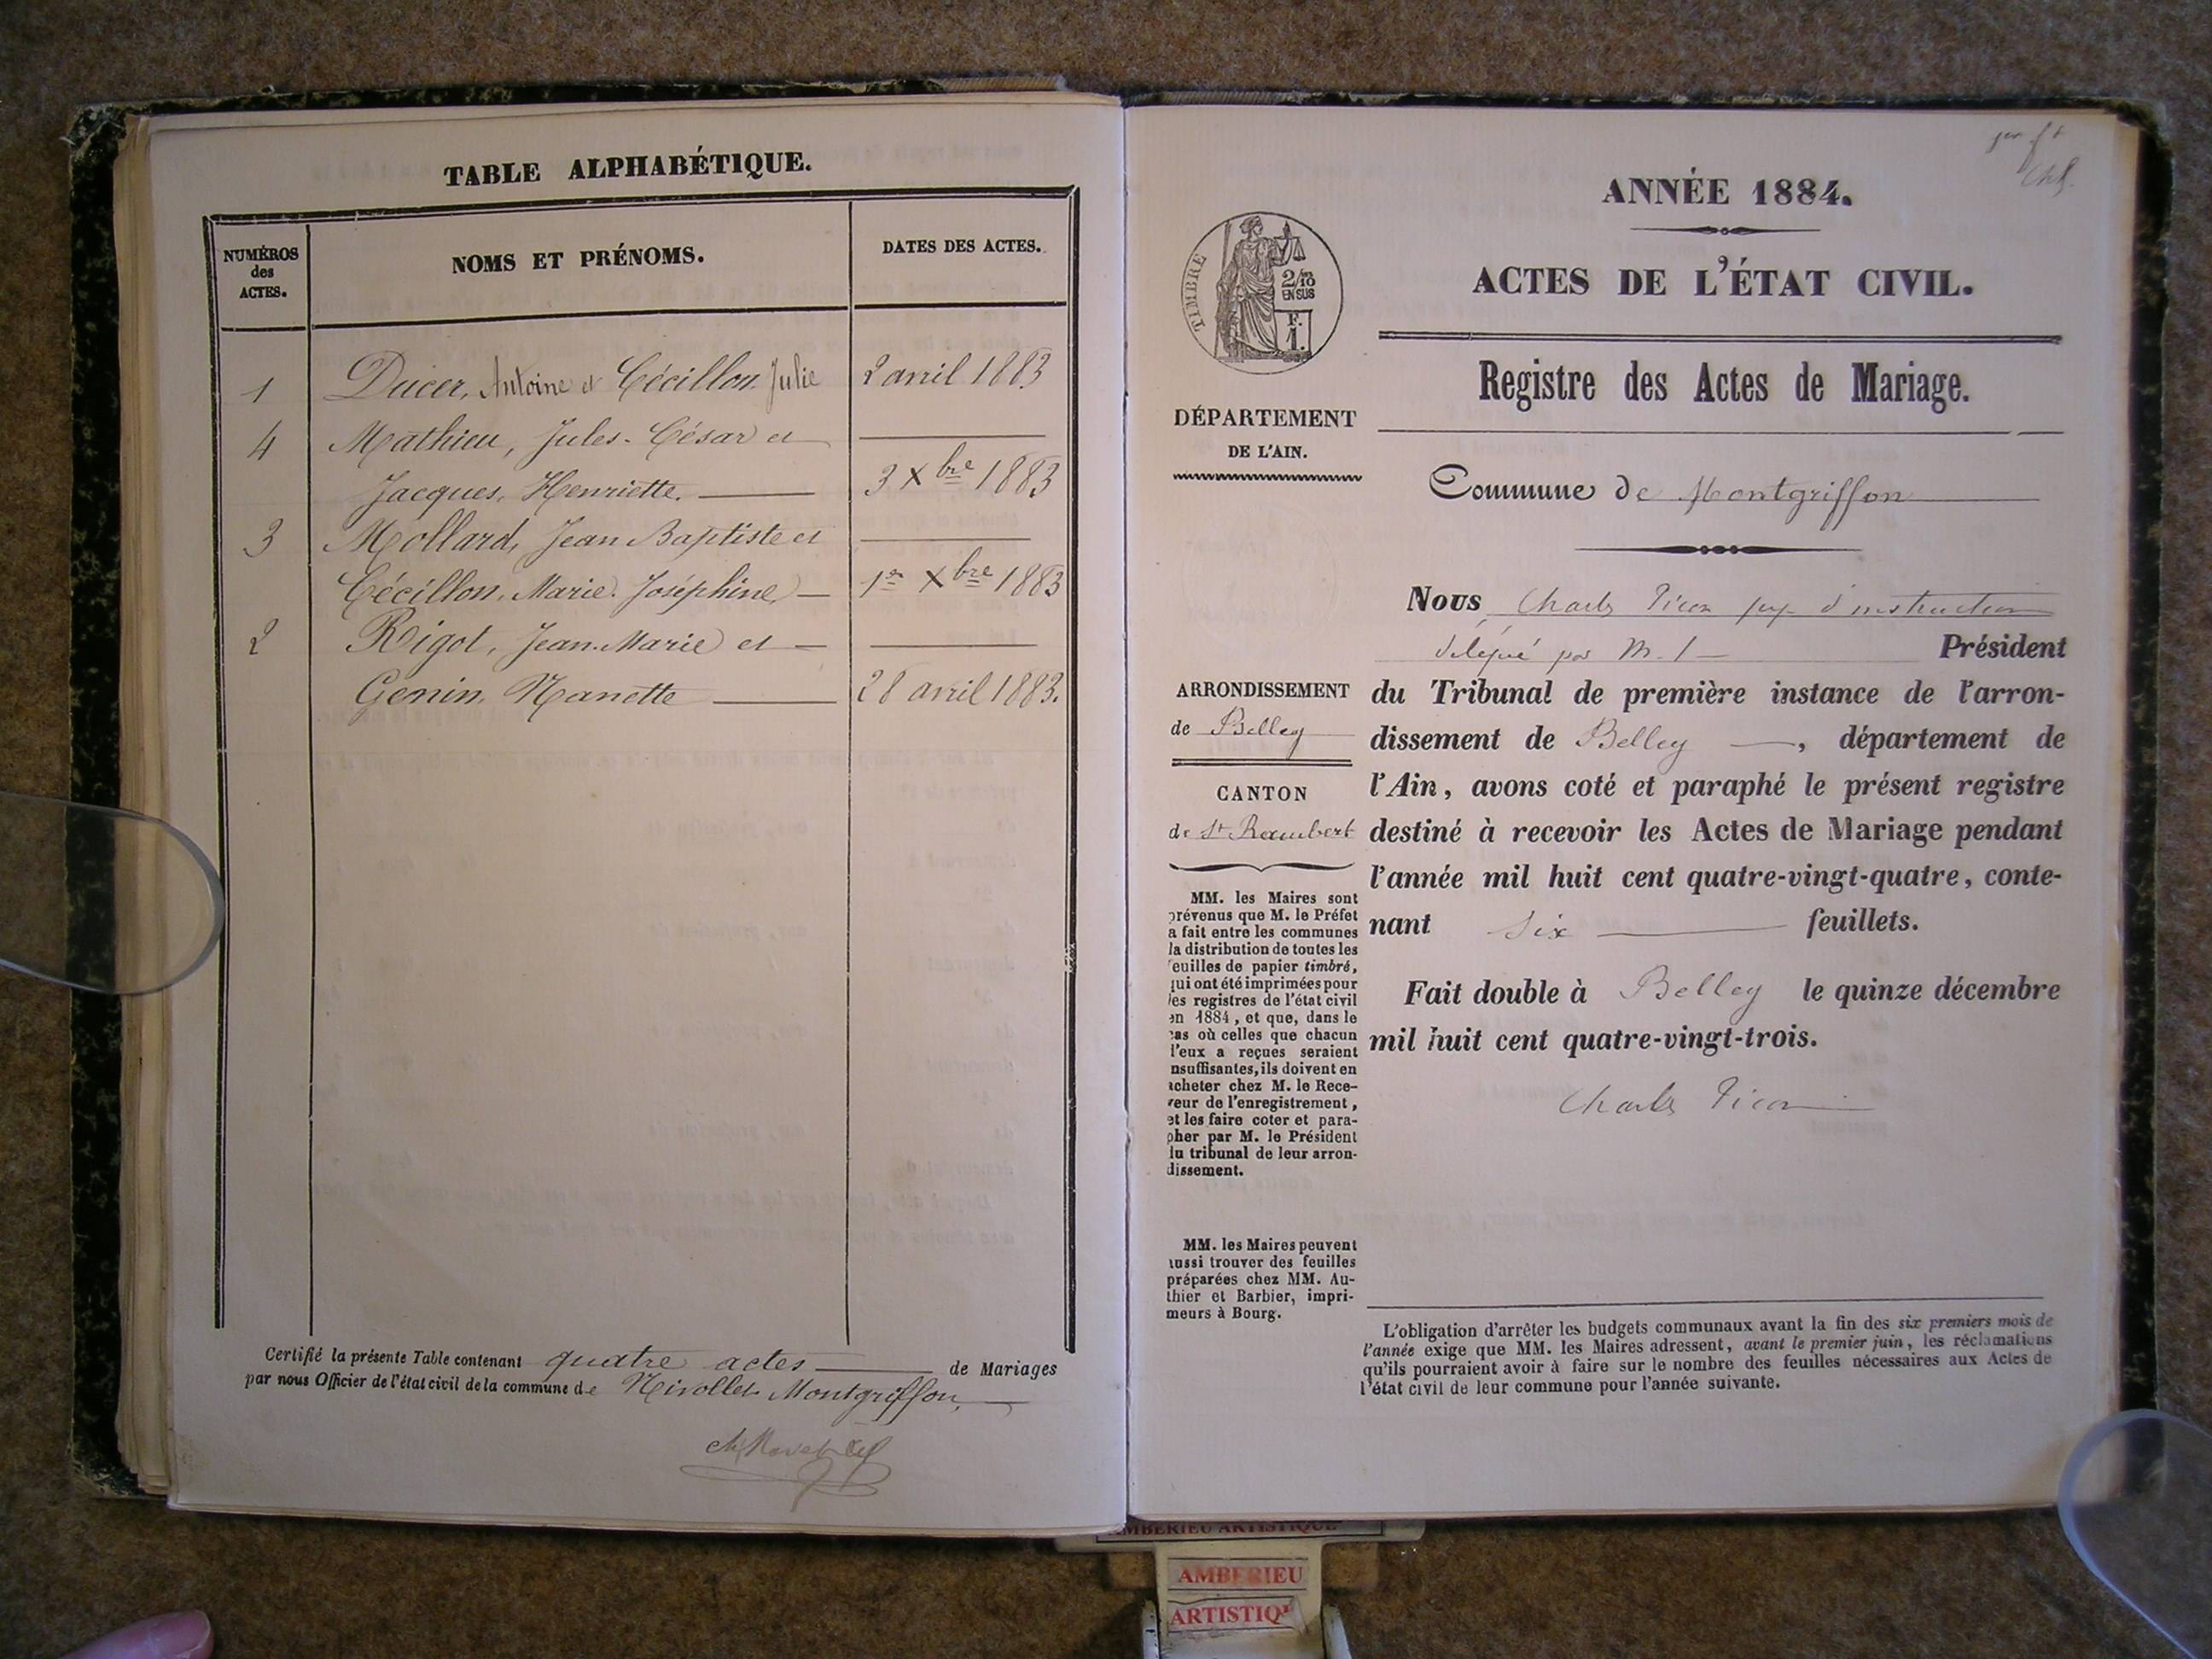 TABLE ALPHABÉTIQUE.
NUMÉROS
des
ACTES.
NOMS ET PRÉNOMS.
DATES DES ACTES.
1 Ducer, Antoine et Cécillon Julie 2 avril 1883
4 Mathieu, Jules-César et
Jacques, Henriette. 3 Xbre 1883
3 Mollard, Jean Baptiste et
Cécillon, Marie Joséphine 1er Xbre 1883
2 Rigot, Jean-Marie et
Genin, Nanette 28 avril 1883.
Certifié la présente Table contenant quatre actes de Mariages
par nous Officier de l'état civil de la commune de Nivollet Montgriffon,
ANNÉE 1884.
ACTES DE L'ÉTAT CIVIL.
TIMBRE
2/10
EN SUS
F.
1.
Registre des Actes de Mariage.
DÉPARTEMENT
DE L'AIN.
Commune de Montgriffon
Nous Charles Picon juge d'instruction
délégué par M. l Président
du Tribunal de première instance de l'arron-
dissement de Belley, département de
l'Ain, avons coté et paraphé le présent registre
destiné à recevoir les Actes de Mariage pendant
l'année mil huit cent quatre-vingt-quatre, conte-
nant six feuillets.
Fait double à Belley le quinze décembre
mil huit cent quatre-vingt-trois.
Charles Picon
ARRONDISSEMENT
de Belley
CANTON
de St Rambert
MM. les Maires sont
prévenus que M. le Préfet
a fait entre les communes
la distribution de toutes les
feuilles de papier timbré,
qui ont été imprimées pour
les registres de l'état civil
en 1884, et que, dans le
cas où celles que chacun
d'eux a reçues seraient
insuffisantes, ils doivent en
acheter chez M. le Rece-
veur de l'enregistrement,
et les faire coter et para-
pher par M. le Président
du tribunal de leur arron-
dissement.
MM. les Maires peuvent
aussi trouver des feuilles
préparées chez MM. Au-
thier et Barbier, impri-
meurs à Bourg.
L'obligation d'arrêter les budgets communaux avant la fin des six premiers mois de
l'année exige que MM. les Maires adressent, avant le premier juin, les réclamations
qu'ils pourraient avoir à faire sur le nombre des feuilles nécessaires aux Actes de
l'état civil de leur commune pour l'année suivante.
AMBERIEU ARTISTIQUE
AMBERIEU
ARTISTIQU